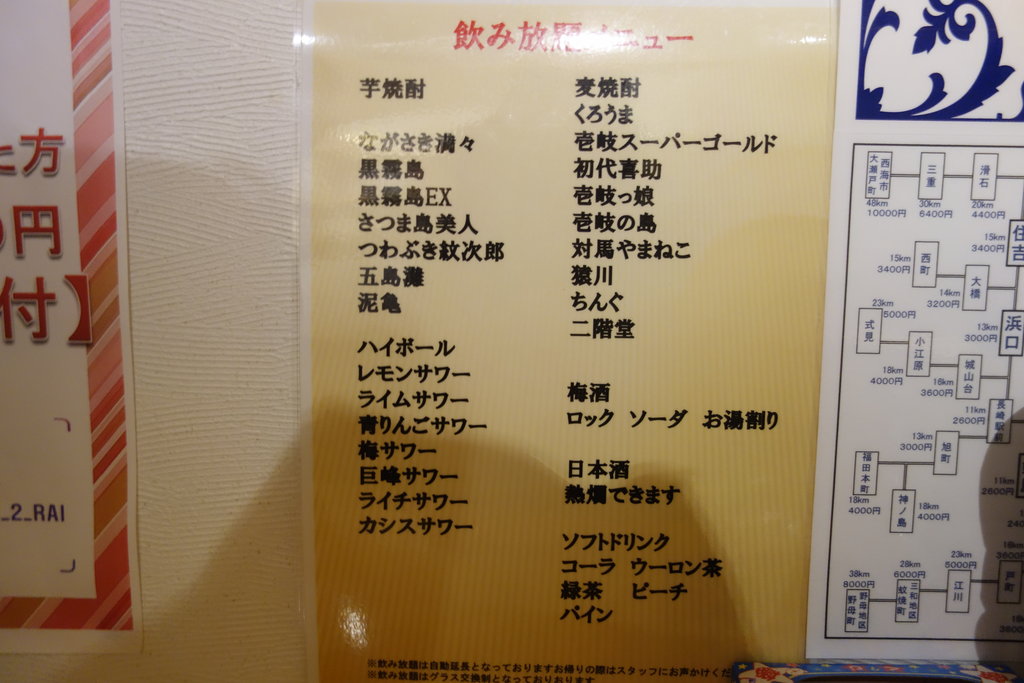 方
円
付】
_2_RAI
飲み放題メニュー
芋焼酎
ながさき満々
黒霧島
黒霧島EX
さつま島美人
つわぶき紋次郎
五島灘
泥亀
ハイボール
レモンサワー
ライムサワー
青りんごサワー
梅サワー
巨峰サワー
ライチサワー
カシスサワー
麦焼酎
くろうま
壱岐スーパーゴールド
初代喜助
壱岐っ娘
壱岐の島
対馬やまねこ
猿川
ちんぐ
二階堂
梅酒
ロック ソーダ お湯割り
日本酒
熱燗できます
ソフトドリンク
コーラ ウーロン茶
緑茶 ピーチ
パイン
※飲み放題は自動延長となっておりますお帰りの際はスタッフにお声かけくだ
※飲み放題はグラス交換制となっておりおります
西海市
大瀬戸町
48km
10000円
三重
30km
6400円
滑石
20km
4400円
15km
3400円
住吉
15km
3400円
西町
14km
3200円
大橋
23km
5000円
式見
13km
3000円
浜口
小江原
18km
4000円
城山台
16km
3600円
11km
2600円
長崎駅前
13km
3000円
旭町
福田本町
18km
4000円
神ノ島
18km
4000円
11km
2600円
38km
8000円
野母地区
野母町
28km
6000円
三和地区
蚊焼町
23km
5000円
江川
16km
3600円
戸町